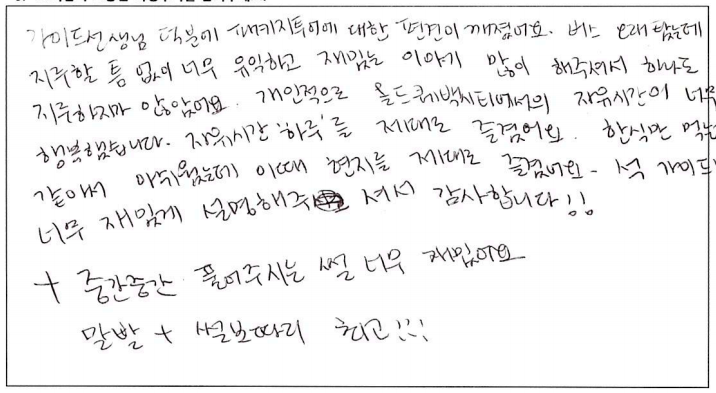 가이드선생님 덕분에 패키지투어에 대한 편견이 깨졌어요. 버스 오래 탔는데
지루할 틈 없이 너무 유익하고 재밌는 이야기 많이 해주셔서 하나도
지루하지가 않았어요. 개인적으로 올드퀘백시티에서의 자유시간이 너무
행복했습니다. 자유시간 '하루'를 제대로 즐겼어요. 한식만 먹는
같아서 아쉬웠는데 이때 현지를 제대로 즐겼어요- 석 가이드
너무 재밌게 설명해주 셔서 감사합니다!!
+ 중간중간 풀어주시는 썰 너무 재밌어요
말빨 + 썰보따리 최고!!!